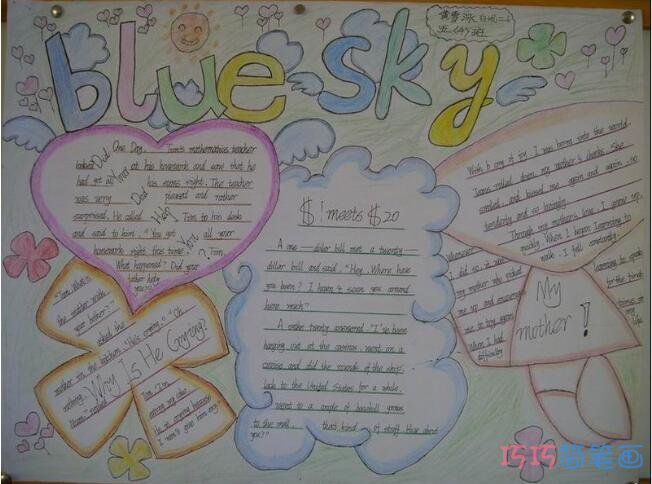 blue sky
五(4)班
One Day, Tom's mathematics teacher
looked at his homework and saw that he
had got all his sums right. The teacher
was very pleased and rather
surprised. He called Tom to his desk
and said to him. "You got all your
homework right this time, Tom.
What happened? Did your
father help
you?"
Did Your Dad Help You?
$1 meets $20
A one dollar bill met a twenty
dollar bill and said, "Hey, Where have
you been? I haven't seen you around
here much."
A the twenty answered, "I've been
hanging out at the casinos, went on a
cruise and did the rounds of the ship,
back to the United States for a while,
went to a couple of baseball games
to the mall, that kind of stuff. How about
you?"
With a cry of joy I was born into the world.
Tears rolled down my mother's cheeks. She
smiled and kissed me again and again, so
tenderly and so lovingly.
Through my mother's love I grew up
quickly. When I began learning to
walk, I fell constantly.
Whenever
I did so, it was
my mother who picked
me up and encouraged
me to try again.
When I had
difficulty
learning to speak
for the first
times in
my
life
My
mother!
"Tom, What is
the matter with
your bother?"
asked the
mother in the kitchen. "He's crying." "Oh,
nothing,
"Tom" replied
I'm
eating my cake
He is crying because
I won't give him any."
Why Is He Crying?
巧巧简笔画